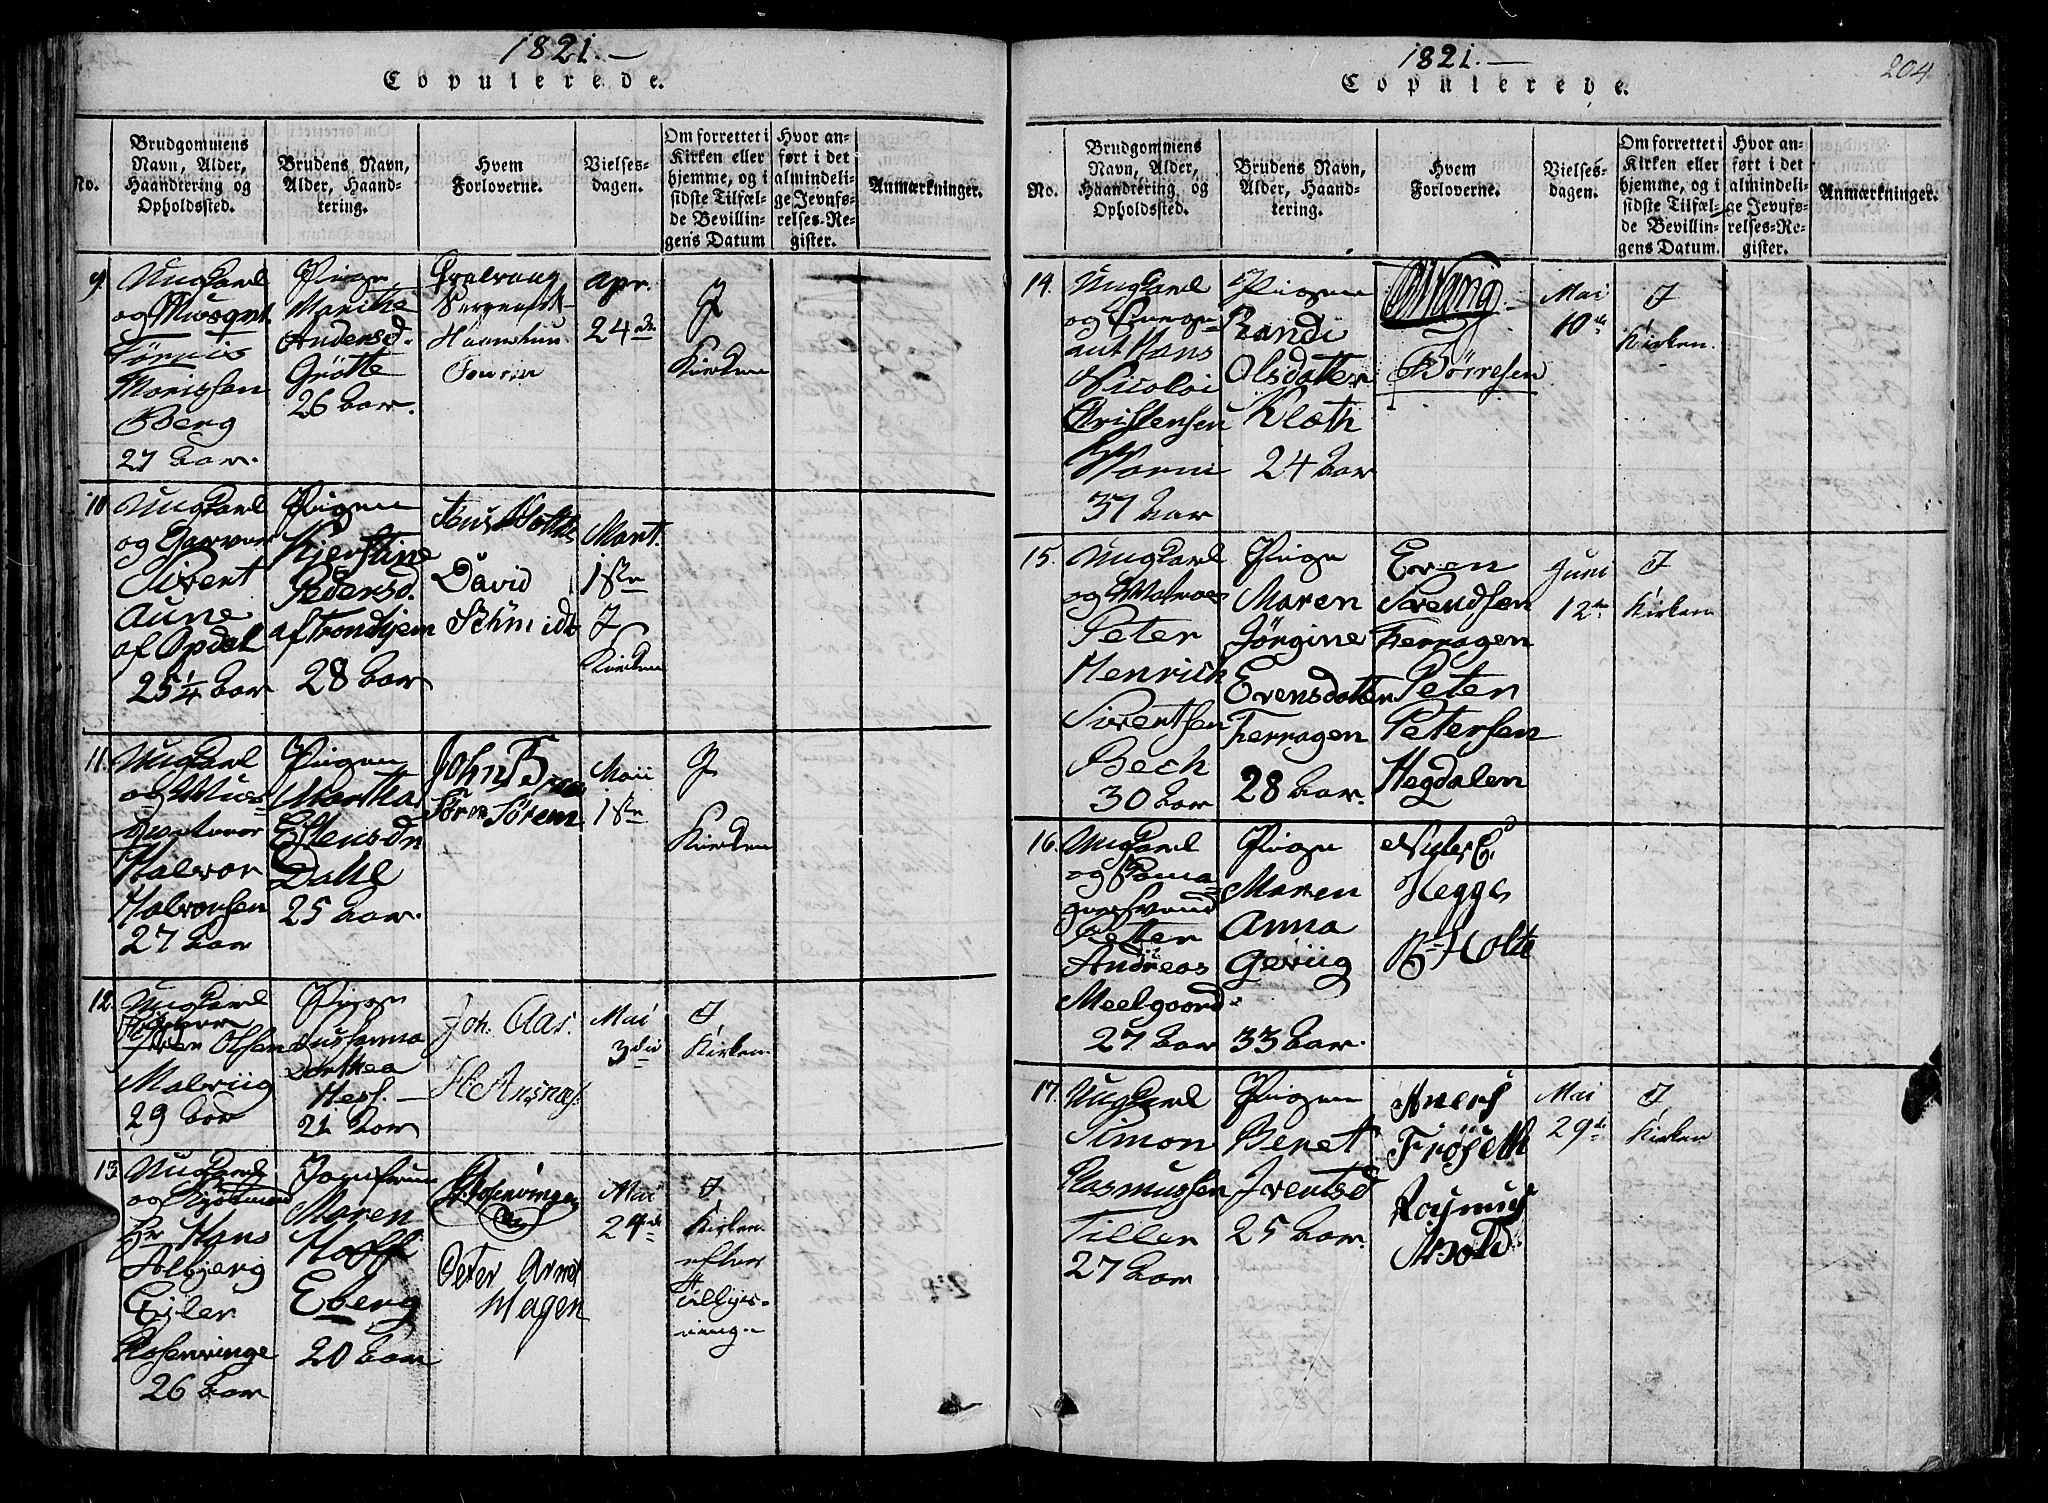 1821.
Copulerede.
No.
Brudgommens
Navn, Alder,
Haandtering og
Opholdssted.
Brudens Navn,
Alder, Haand-
tering.
Hvem
Forloverne.
Vielses-
dagen.
Om forrettet i
Kirken eller
hjemme, og i
sidste Tilfæl-
de Bevillin-
gens Datum
Hvor an-
ført i det
almindeli-
ge Jevnfø-
relses-Re-
gister.
Anmærkninger.
9.
Ungkarl
og Musqut.
Morissen
Berg
27 Aar.
Pigen
Maritha
Andersd.
Grøtte
26 Aar.
Apr.
24de
I
Kirken
10
Ungkarl
og Garver
Sivert
Aune
af Opdal
25 1/4 Aar
Pigen
Kjerstine
Pedersd.
af Trondhjem
28 Aar
David
Schmidt
1ste
I
Kirken
11.
Ungkarl
og Mus-
Halvor
Halvorsen
27 Aar
Pigen
Martha
Estensdr
Dahl
25 Aar.
John
Maii
1ste
I
Kirken
12.
Ungkarl
Olsen
Malviig
29 Aar
Pigen
Susanna
Dorthea
Hess.
21 Aar
Joh. Aas.
H. Ansnæs.
Mai
3die
I
Kirken.
13.
Ungkarl
og Kjøbmand
Hr Hans
Solbjerg
Eiler
Rosenvinge
26 Aar
Jomfrue
Maren
Hoff
Eberg
20 Aar
Rosenvinge
Peter Arnet
Hagen
Mai
24de
I
Kirken
efter
Tillys-
ning.
1821.
204
Copulerede.
No.
Brudgommens
Navn, Alder,
Haandtering og
Opholdssted.
Brudens Navn,
Alder, Haand-
tering.
Hvem
Forloverne.
Vielses-
dagen.
Om forrettet i
Kirken eller
hjemme, og i
sidste Tilfæl-
de Bevillin-
gens Datum.
Hvor an-
ført i det
almindeli-
ge Jevnfø-
relses-Re-
gister.
Anmærkninger.
14.
Ungkarl
og
Hans
Nicolai
Christensen
Worm
37 Aar
Pigen
Randi
Olsdatter
Kloth
24 Aar
Wang
Børresen
Mai
10de
I
Kirken.
15.
Ungkarl
og Matros
Peter
Henrich
Sivertsen
Bech
30 Aar
Pigen
Maren
Jørgine
Evensdatter
Ferragen
28 Aar.
Even
Svendsen
Ferragen
Peter
Petersen
Hegdalen
Juni
12te
I
Kirken
16.
Ungkarl
og Boma-
gersvend
Petter
Andreas
Meelgaard
27 Aar
Pigen
Maren
Anna
Geviig
33 Aar.
Hegge
Holte
17.
Ungkarl
Simon
Rasmussen
Tiller
27 Aar
Pigen
Beret
Iventsd
25 Aar.
Aners
Frøseth
Rasmus
Mai
29de
I
Kirken